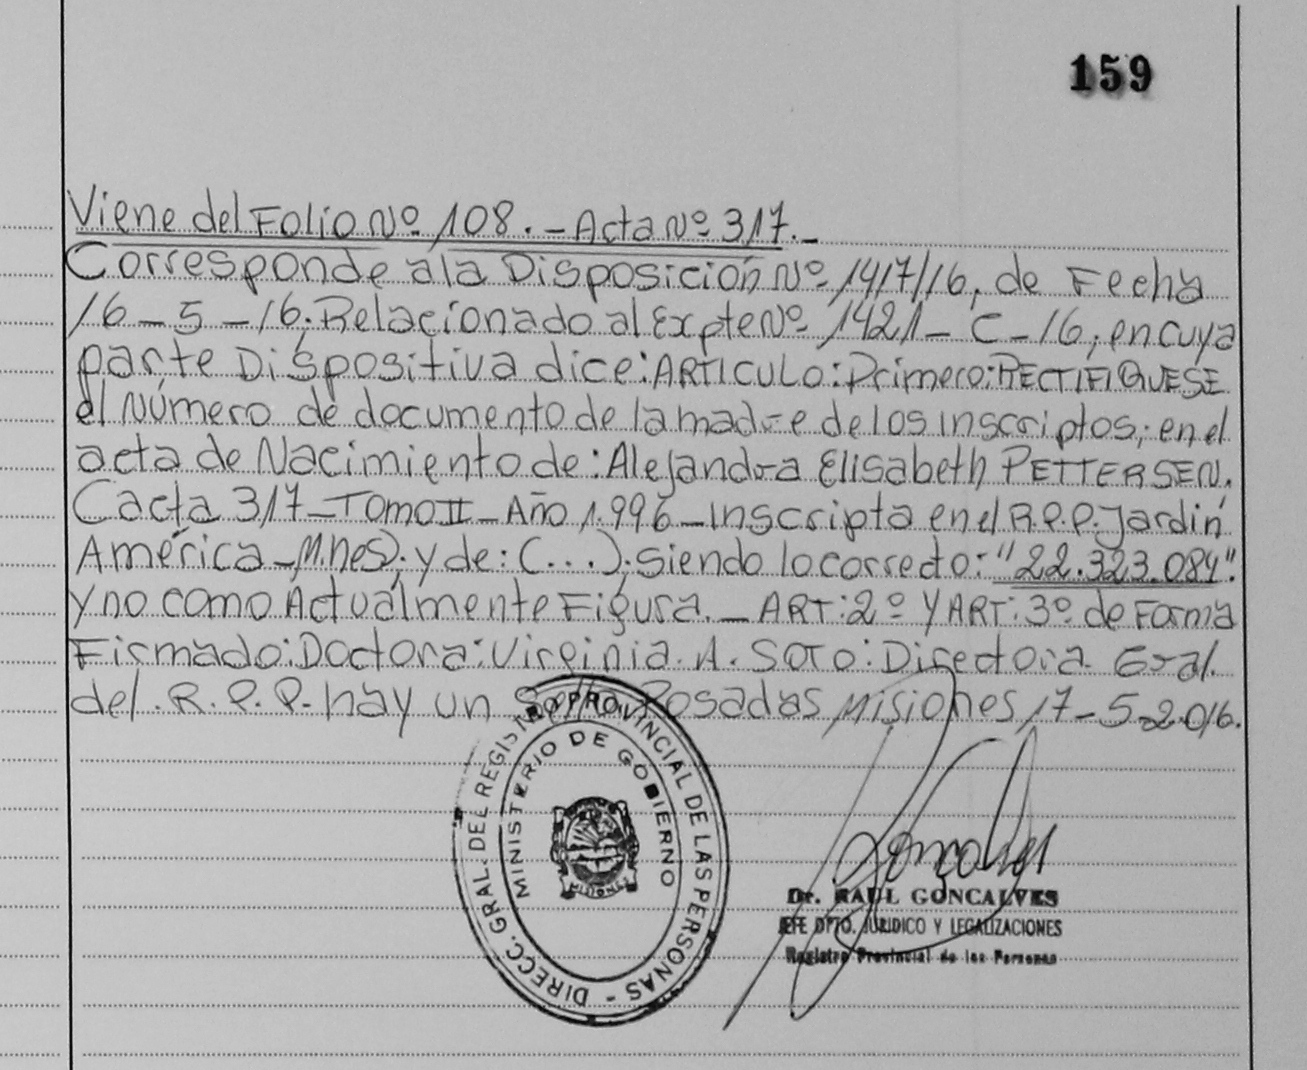 159
Viene del Folio Nº 108.- Acta Nº 317.-
Corresponde a la Disposición Nº 1417/16, de Fecha
16-5-16. Relacionado al Expte Nº 1421-C-16, en cuya
parte Dispositiva dice: ARTICULO: Primero: RECTIFIQUESE
el Número de documento de la madre de los inscriptos, en el
acta de Nacimiento de: Alejandra Elisabeth PETTERSEN.
Cacta 317-Tomo II-Año 1.996-Inscripta en el R.P.P. Jardín
América-Mnes). y de: (...). siendo lo correcto: "22.323.084".
y no como Actualmente Figura.- ART: 2º Y ART: 3º de Forma
Firmado: Doctora: Virginia. A. SOTO: Directora Gral.
del. R.P.P. hay un Sello Posadas Misiones 17-5-2.016.
DIRECC. GRAL. DEL REGISTRO PROVINCIAL DE LAS PERSONAS -
MINISTERIO DE GOBIERNO
MISIONES
Goncalves
Dr. RAUL GONCALVES
JEFE DPTO. JURIDICO Y LEGALIZACIONES
Registro Provincial de las Personas